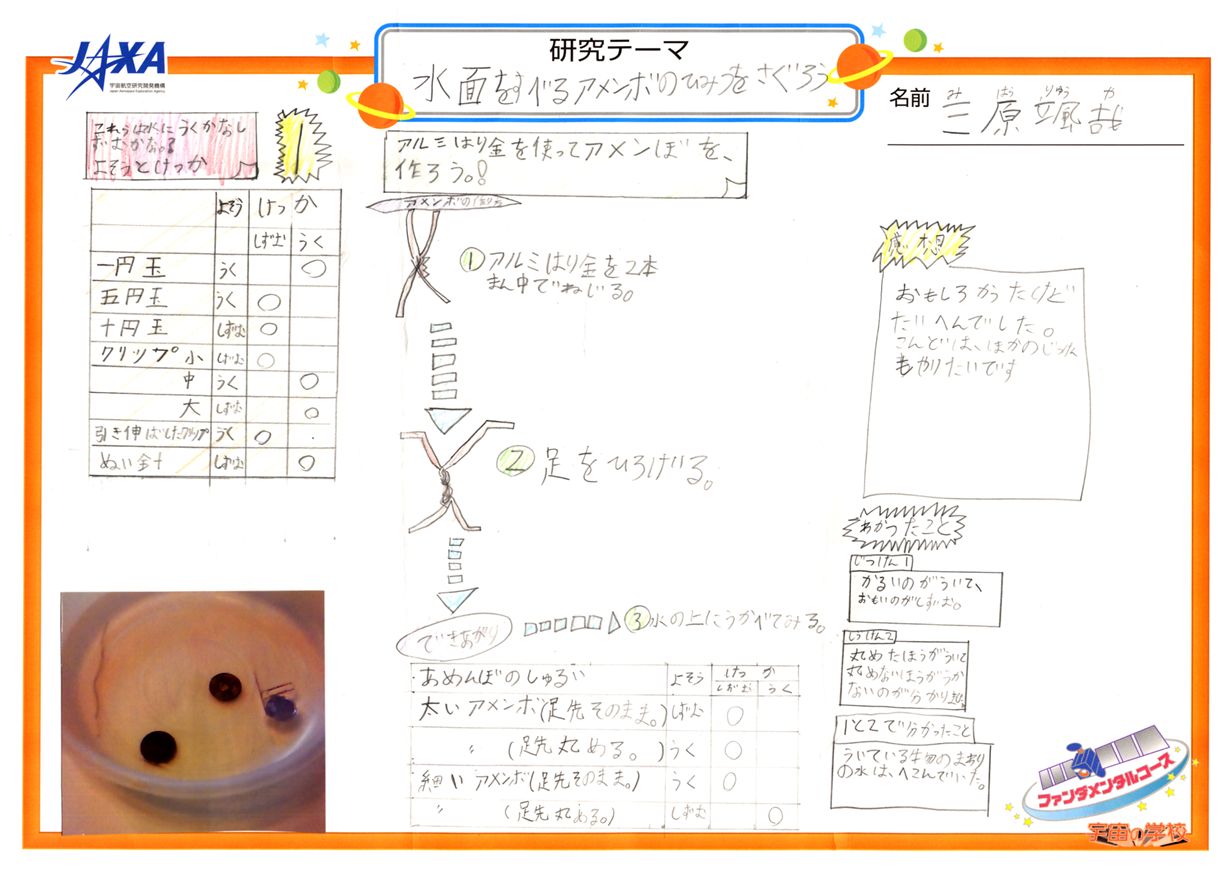 JAXA
宇宙航空研究開発機構
Japan Aerospace Exploration Agency
研究テーマ
水面をすべるアメンボのひみつをさぐろう
名前
み はら りゅう や
三原 颯哉
これらは水にうくかな
しずむかな。?
よそうとけっか
1
よそう けっか
しずむ うく
一円玉 うく ○
五円玉 うく ○
十円玉 しずむ ○
クリップ小 しずむ ○
中 うく ○
大 しずむ ○
引き伸ばしたクリップ うく ○
ぬい針 しずむ ○
アルミはり金を使ってアメンぼを、
作ろう。!
アメンボの作り方
① アルミはり金を2本
まん中でねじる。
② 足をひろげる。
できあがり
③ 水の上にうかべてみる。
あめんぼのしゅるい よそう けっか
しずむ うく
太いアメンボ(足先そのまま。) しずむ ○
〃 (足先丸める。) うく ○
細いアメンボ(足先そのまま。) うく ○
〃 (足先丸める。) しずむ ○
感想
おもしろかったけど
たいへんでした。
こんどは、ほかのじっけん
もやりたいです
わかったこと
じっけん1
かるいのがういて、
おもいのがしずむ。
じっけん2
丸めたほうがういて
丸めないほうがうか
ないのが分かりました
1と2で分かったこと
ういている生物のまわり
の水は、へこんでいた。
ファンダメンタルコース
宇宙の学校